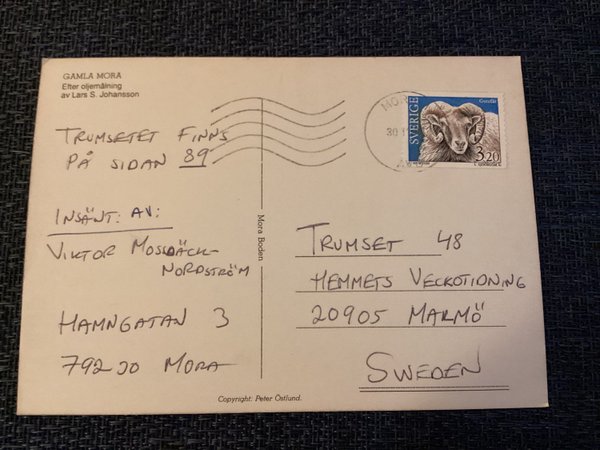 GAMLA MORA
Efter oljemålning
av Lars S. Johansson
TRUMSETET FINNS
PÅ SIDAN 89
INSÄNT: AV:
VIKTOR
NORDSTRÖM
HAMNGATAN 3
792 30 MORA
Mora Boden
Copyright: Peter Östlund.
SVERIGE
Gutefår
3,20
30
TRUMSET 48
HEMMETS VECKOTIDNING
20905 MARMÖ
SWEDEN